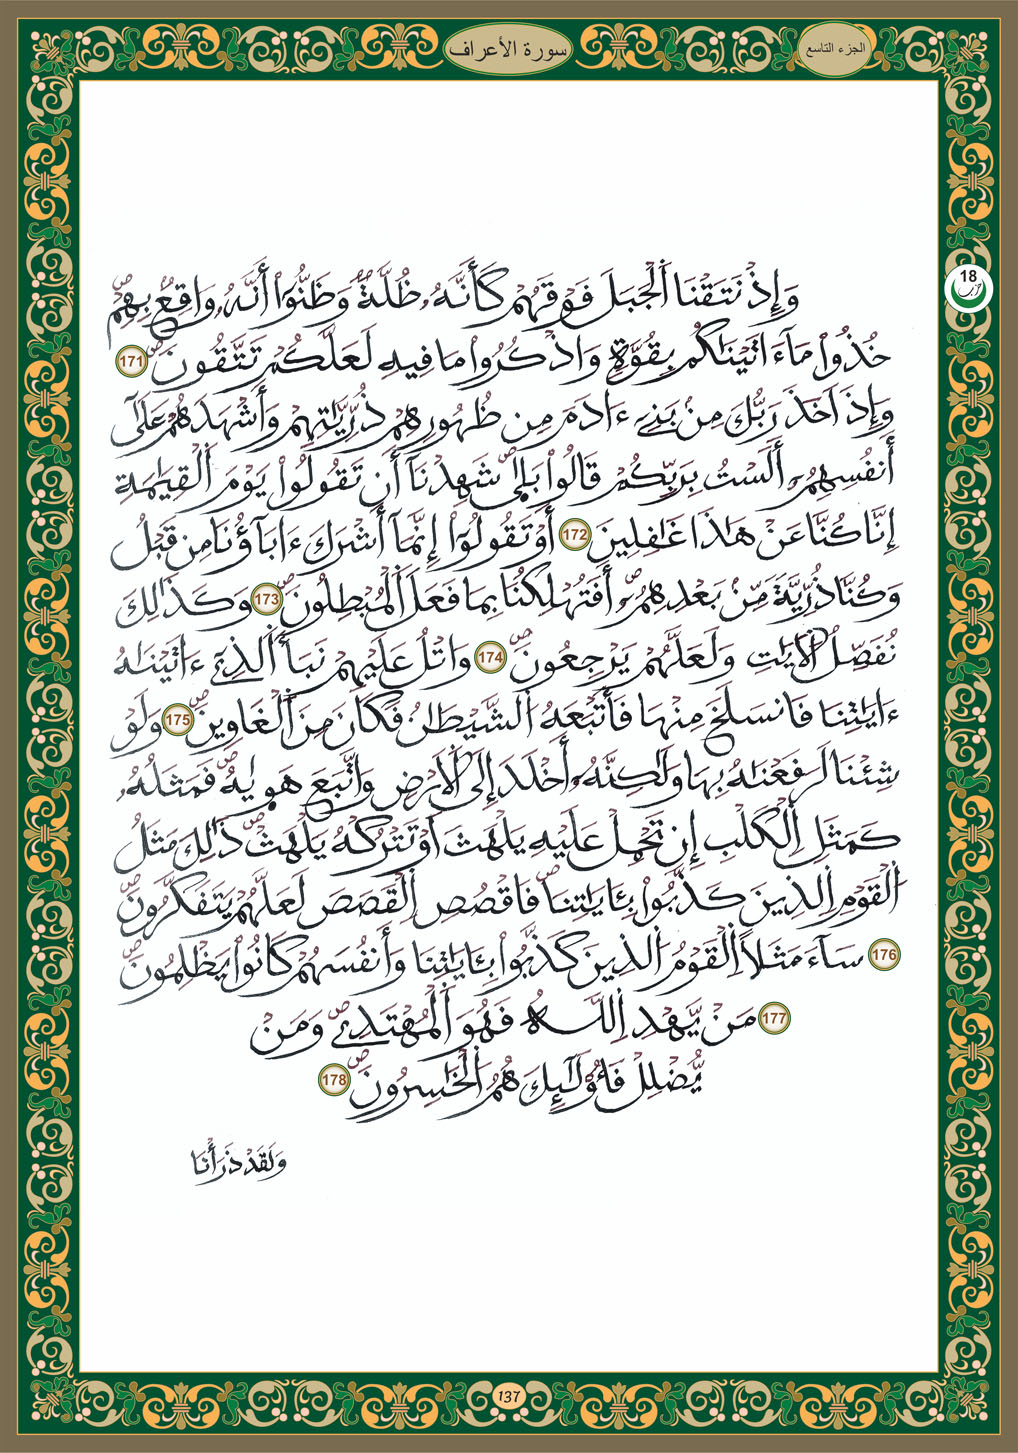 الجزء التاسع
سورة الأعراف
18
وَإِذْ نَتَقْنَا اَ۬لْجَبَلَ فَوْقَهُمْ كَأَنَّهُۥ ظُلَّةٞ وَظَنُّوٓاْ أَنَّهُۥ وَاقِعُۢ بِهِمْ
خُذُواْ مَآ ءَاتَيْنَٰكُم بِقُوَّةٖ وَاذْكُرُواْ مَا فِيهِ لَعَلَّكُمْ تَتَّقُونَۖ 171
وَإِذَ اَخَذَ رَبُّكَ مِنۢ بَنِےٓ ءَادَمَ مِن ظُهُورِهِمْ ذُرِّيَّٰتِهِمْ وَأَشْهَدَهُمْ عَلَيٰٓ
أَنفُسِهِمُۥٓ أَلَسْتُ بِرَبِّكُمْ قَالُواْ بَلَيٰۖ شَهِدْنَآ أَن تَقُولُواْ يَوْمَ اَ۬لْقِيَٰمَةِ
إِنَّا كُنَّا عَنْ هَٰذَا غَٰفِلِينَ 172 أَوْ تَقُولُوٓاْ إِنَّمَآ أَشْرَكَ ءَابَآؤُنَا مِن قَبْلُ
وَكُنَّا ذُرِّيَّةٗ مِّنۢ بَعْدِهِمُۥٓۖ أَفَتُهْلِكُنَا بِمَا فَعَلَ اَ۬لْمُبْطِلُونَۖ 173 وَكَذَٰلِكَ
نُفَصِّلُ اُ۬لْأٓيَٰتِ وَلَعَلَّهُمْ يَرْجِعُونَۖ 174 وَاتْلُ عَلَيْهِمْ نَبَأَ اَ۬لذِےٓ ءَاتَيْنَٰهُ
ءَايَٰتِنَا فَانسَلَخَ مِنْهَا فَأَتْبَعَهُ اُ۬لشَّيْطَٰنُ فَكَانَ مِنَ اَ۬لْغَاوِينَۖ 175 وَلَوْ
شِئْنَا لَرَفَعْنَٰهُ بِهَا وَلَٰكِنَّهُۥٓ أَخْلَدَ إِلَي اَ۬لْأَرْضِ وَاتَّبَعَ هَوٜيٰهُۖ فَمَثَلُهُۥ
كَمَثَلِ اِ۬لْكَلْبِ إِن تَحْمِلْ عَلَيْهِ يَلْهَثَ اَوْ تَتْرُكْهُ يَلْهَثْۖ ذَّٰلِكَ مَثَلُ
اُ۬لْقَوْمِ اِ۬لذِينَ كَذَّبُواْ بِـَٔايَٰتِنَاۖ فَاقْصُصِ اِ۬لْقَصَصَ لَعَلَّهُمْ يَتَفَكَّرُونَۖ
176 سَآءَ مَثَلاً اِ۬لْقَوْمُ اُ۬لذِينَ كَذَّبُواْ بِـَٔايَٰتِنَا وَأَنفُسَهُمْ كَانُواْ يَظْلِمُونَۖ
177 مَنْ يَّهْدِ اِ۬للَّهُ فَهُوَ اَ۬لْمُهْتَدِےۖ وَمَنْ
يُّضْلِلْ فَأُوْلَٰٓئِكَ هُمُ اُ۬لْخَٰسِرُونَۖ 178
وَلَقَدْ ذَرَأْنَا
137